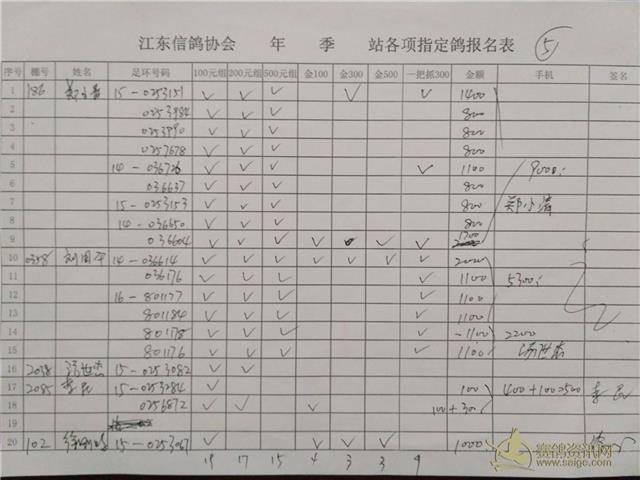 江东信鸽协会 年 季 站各项指定鸽报名表 ⑤
序号 棚号 姓名 足环号码 100元组 200元组 500元组 金100 金300 金500 一把抓300 金额 手机 签名
1 186 15-0253151 ✓ ✓ ✓ ✓ ✓ 1400
2 0253984 ✓ ✓ ✓ 800
3 0253990 ✓ ✓ ✓ 800
4 0257678 ✓ ✓ ✓ 800
5 14-036726 ✓ ✓ ✓ ✓ 1100 9000
6 036637 ✓ ✓ ✓ 800
7 15-0253153 ✓ ✓ ✓ 800 郑小清
8 14-036650 ✓ ✓ ✓ 800
9 036604 ✓ ✓ ✓ ✓ ✓ ✓ ✓ 1700
10 0358 刘国平 14-036614 ✓ ✓ ✓ ✓ ✓ ✓ ✓ 2000
11 036176 ✓ ✓ ✓ ✓ 1100 5300
12 16-801177 ✓ ✓ ✓ ✓ 1100
13 801184 ✓ ✓ ✓ ✓ 1100
14 801178 ✓ ✓ ✓ ✓ -1100 2200
15 801176 ✓ ✓ ✓ ✓ 1100 汤世杰
16 2038 汤世杰 15-0253082 ✓ ✓
17 2085 李民 15-0253284 ✓ 100 400+100=500 李民
18 0256872 ✓ ✓ ✓ 100+300
19
20 102 15-0253067 ✓ ✓ ✓ ✓ 1000
19 17 15 4 3 3 9
赛鸽资讯网
www.saige.com